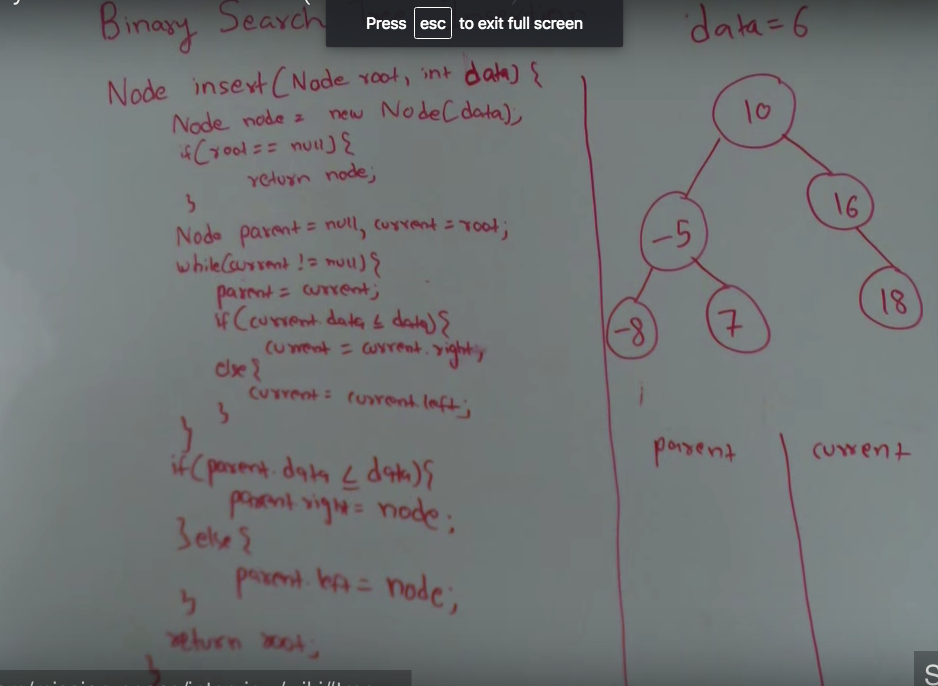 Binary Search
Press esc to exit full screen
data = 6
Node insert(Node root, int data) {
Node node = new Node(data);
if(root == null){
return node;
}
Node parent = null, current = root;
while(current != null){
parent = current;
if(current.data ≤ data){
current = current.right;
else{
current = current.left;
}
}
if(parent.data ≤ data){
parent.right = node;
}else{
parent.left = node;
}
return root;
}
10
-5
16
-8
7
18
parent
current
S